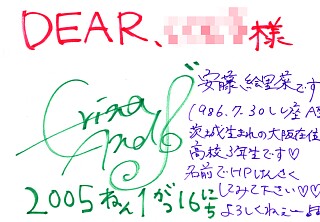 DEAR、様
安藤絵里菜です
Erina Ando
1986.7.30しし座A型
茨城生まれの大阪在住
高校3年生です♡
名前でHPけんさく
してみて下さい♡♡
2005ねん1がつ16にち
よろしくねぇー